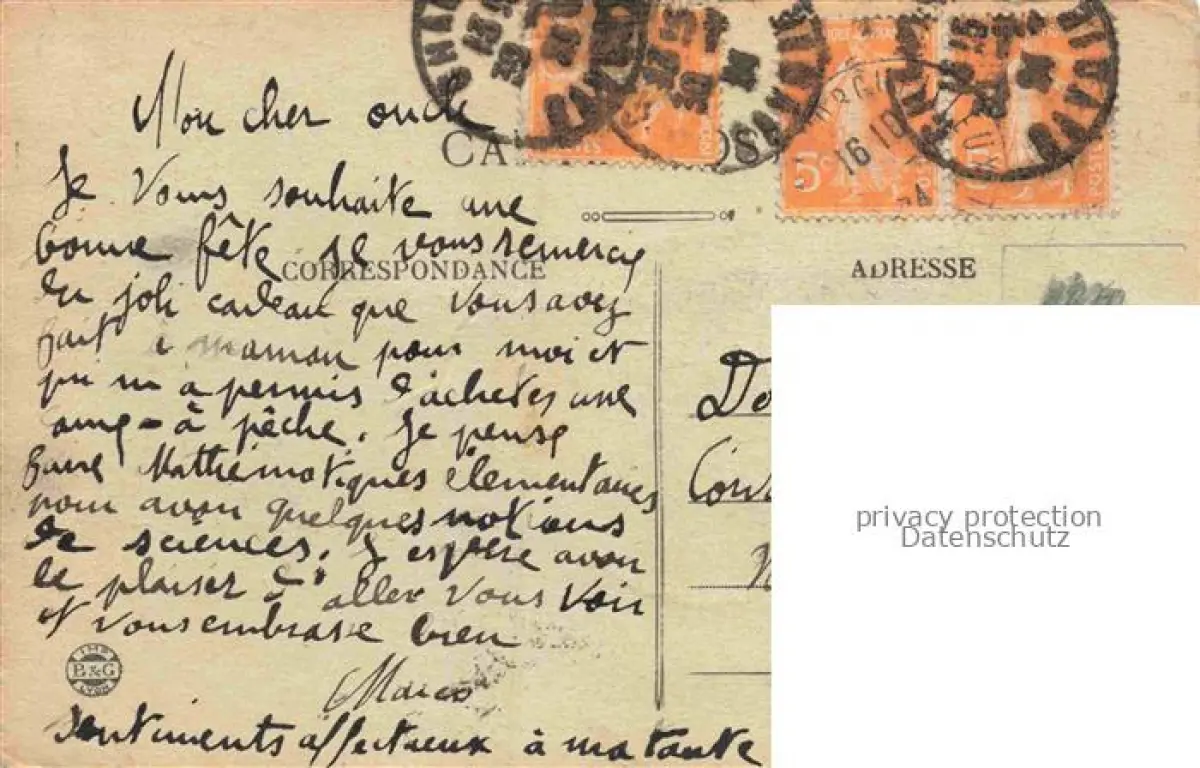 Mon cher oncle
CA
OS
Je Vous souhaite une
bonne fête je vous remercie
CORRESPONDANCE
ADRESSE
du joli cadeau que vous avez
fait à maman pour moi et
qui m a permis d'acheter une
à pêche. Je pense
faire Mathématiques élémentaires
pour avoir quelques notions
de sciences. J espère avoir
le plaisir d'aller vous voir
et vous embrasse bien
Sentiments affectueux à ma tante
5c
16 10
B&G
Do
privacy protection
Datenschutz